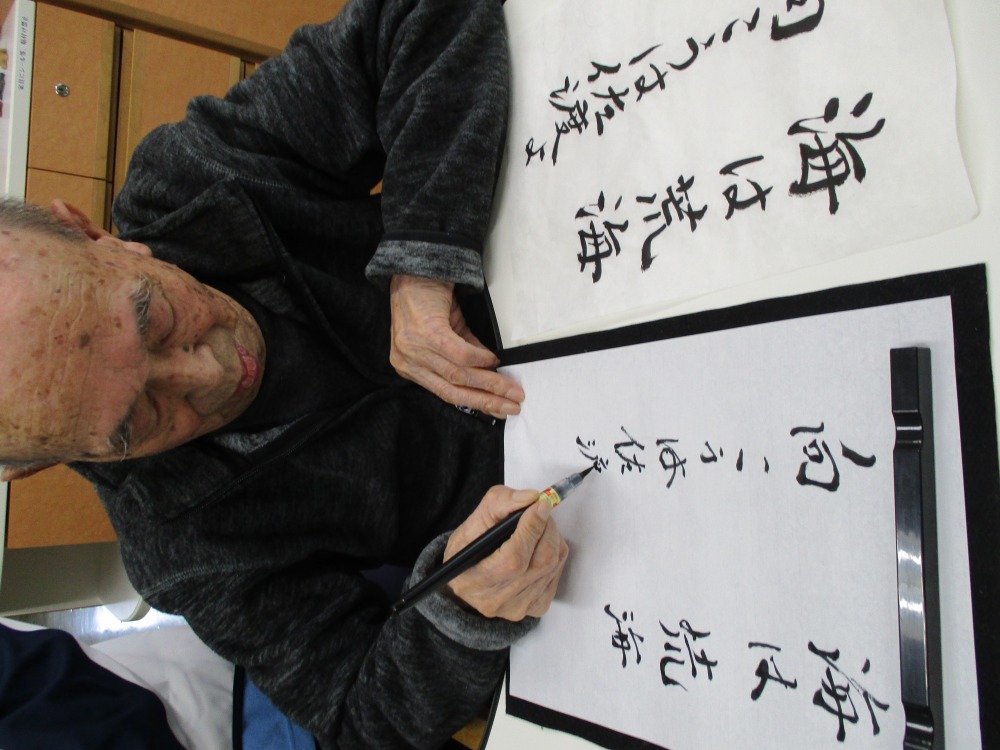 海は荒海
向こうは佐
海は荒海
向こうは佐渡よ